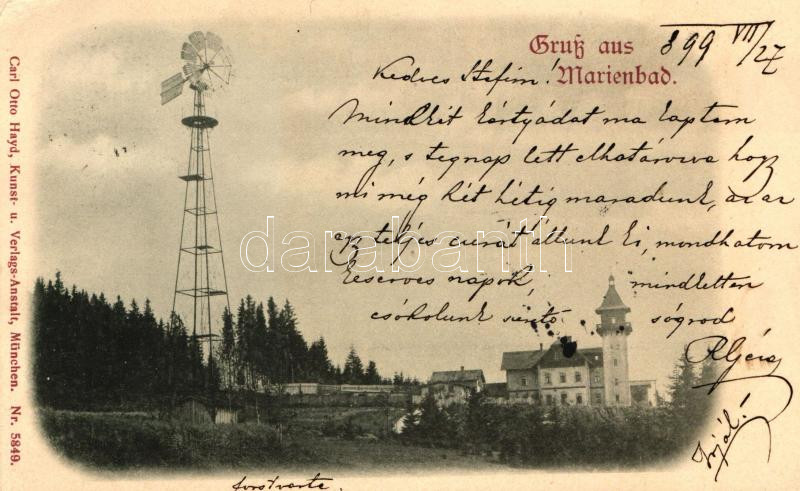 Gruß aus
Marienbad.
899 VII/27
Kedves Stefim!
Mindkét kártyádat ma kaptam
meg, s tegnap lett elhatározva hogy
mi még két hétig maradunk, az az
egy teljes curát állunk ki, mondhatom
keserves napok, mindketten
csókolunk szerető sógrod
Írjál!
Carl Otto Hayd, Kunst- u. Verlags-Anstalt, München. Nr. 5849.
darabanth